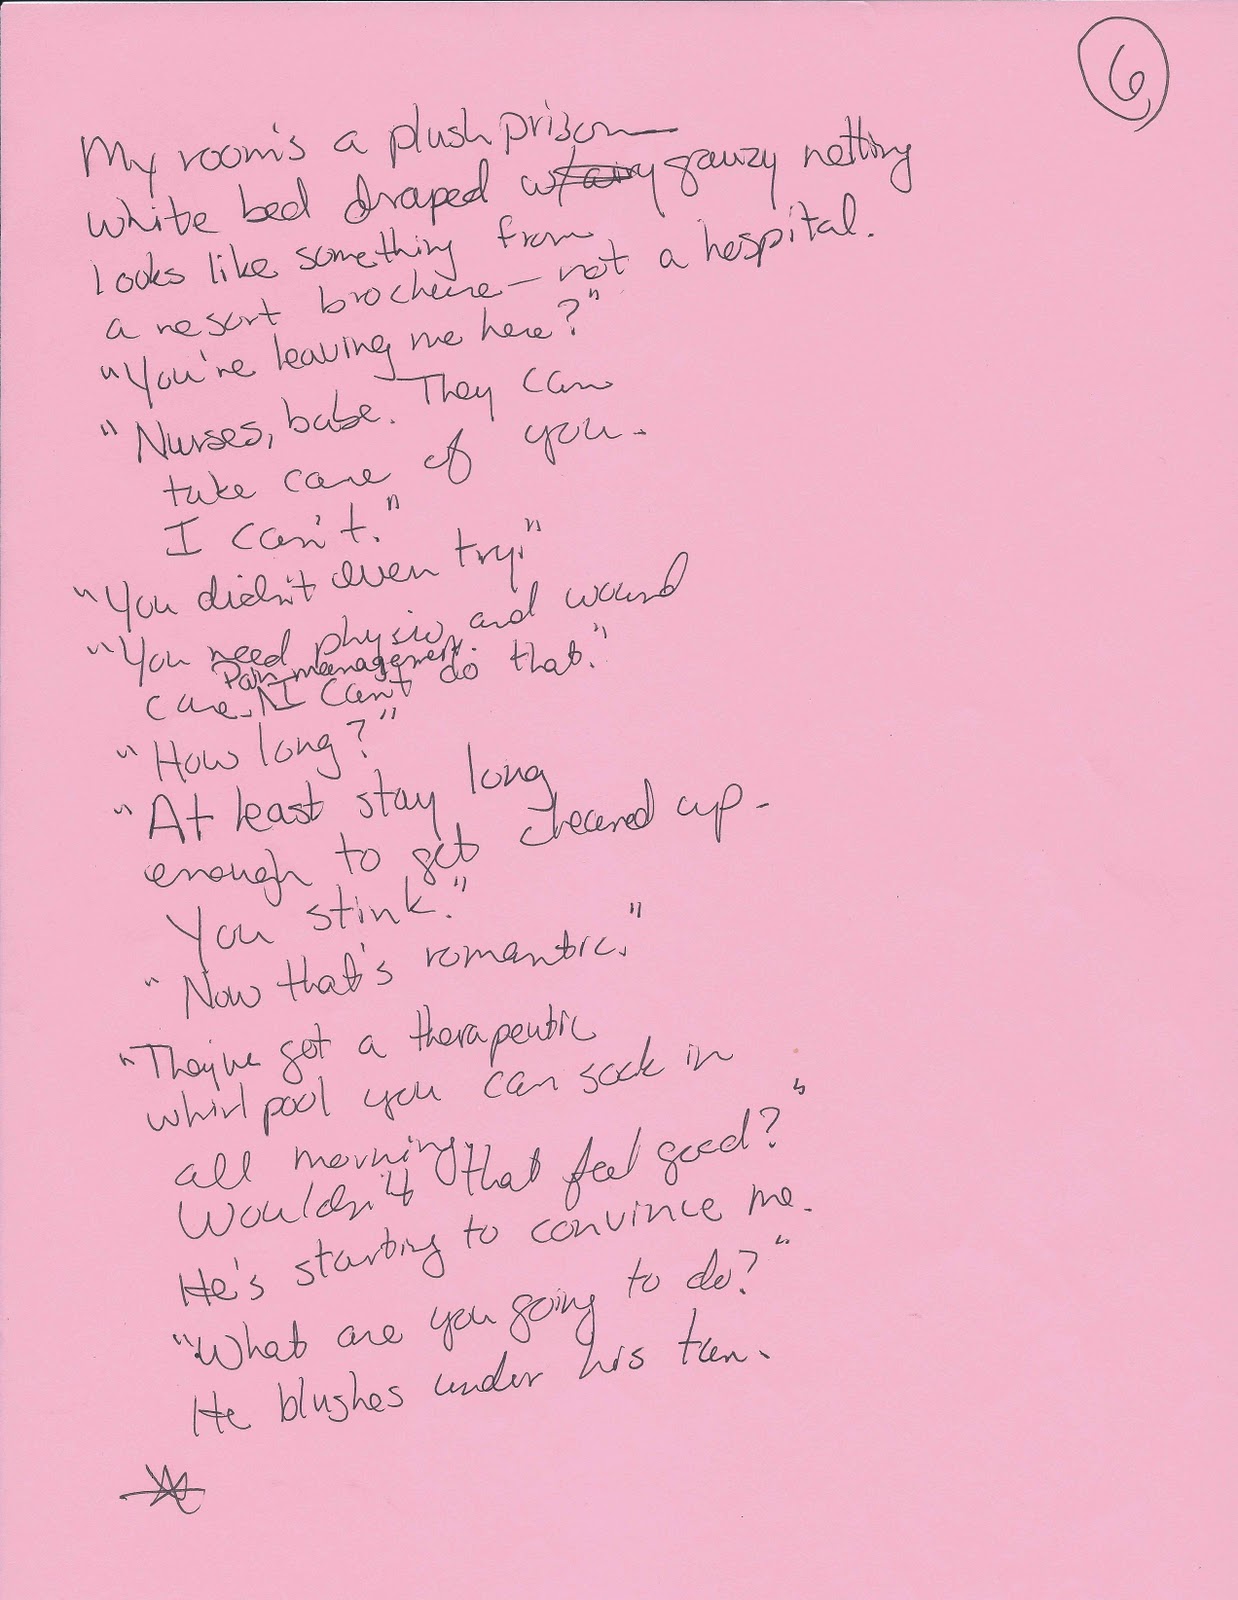 6
My room's a plush prison
white bed draped w/ airy gauzy netting
looks like something from
a resort brochure — not a hospital.
"You're leaving me here?"
"Nurses, babe. They can
take care of you.
I can't."
"You didn't even try."
"You need physio, and wound
Pain management.
care. I can't do that."
"How long?"
"At least stay long
enough to get cleaned up.
You stink."
"Now that's romantic."
"They've got a therapeutic
whirlpool you can soak in
all morning.
Wouldn't that feel good?"
He's starting to convince me.
"What are you going to do?"
He blushes under his tan.